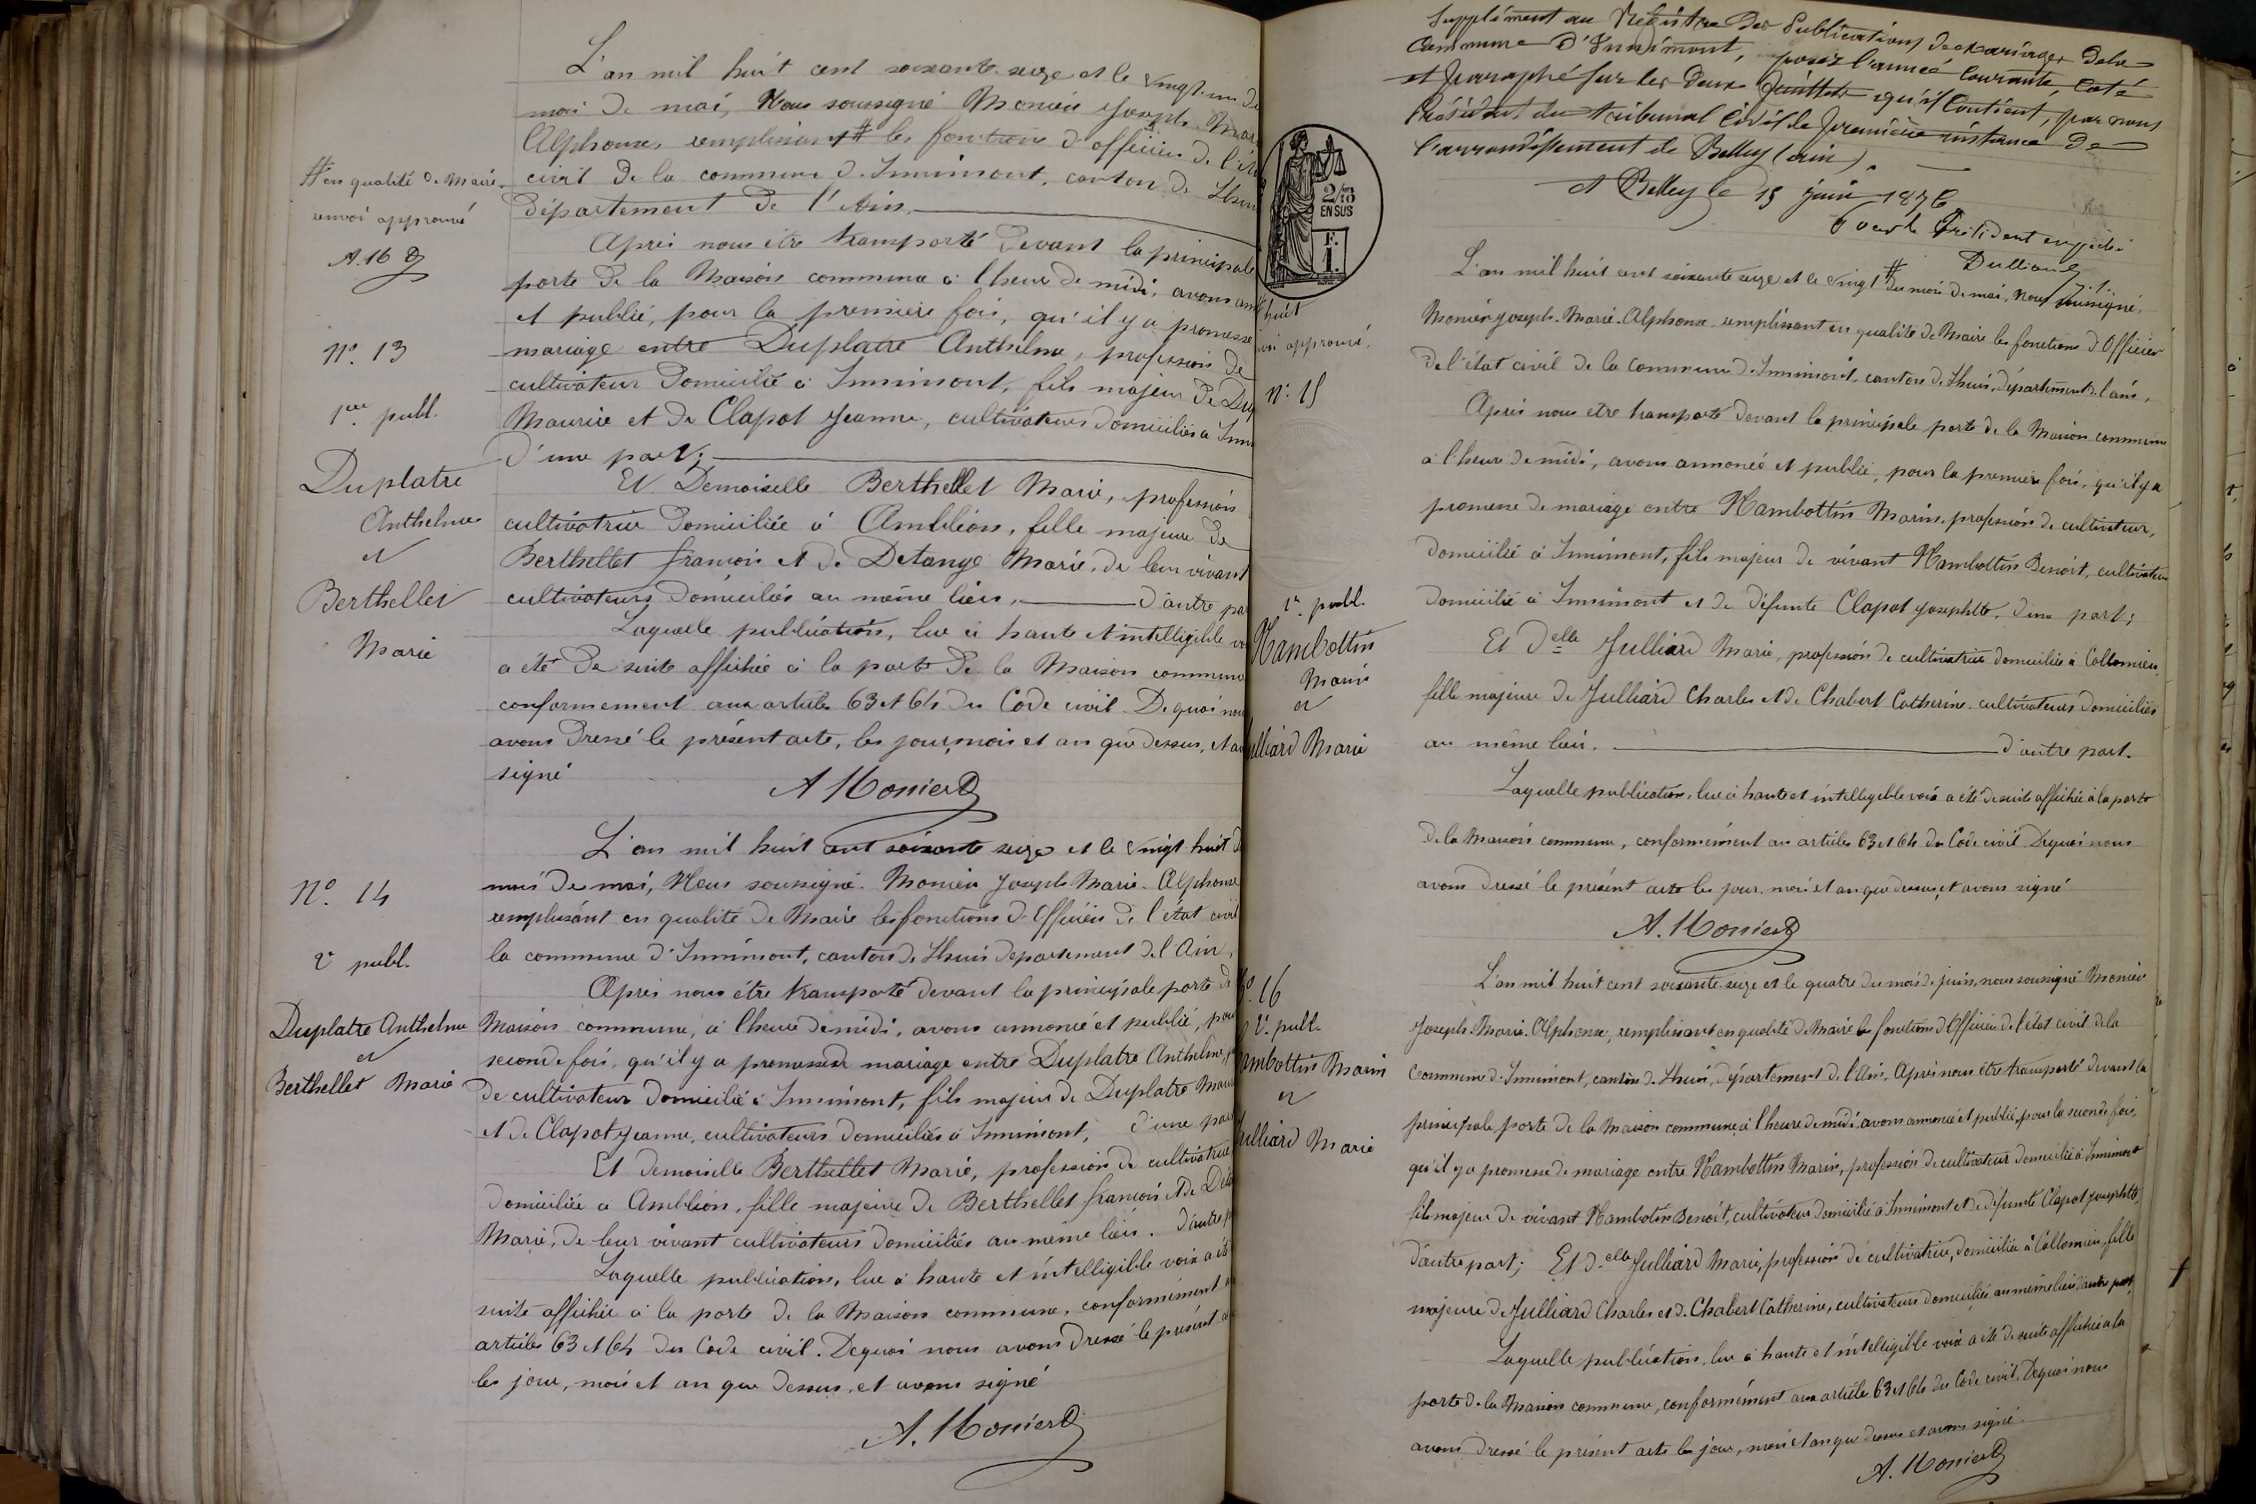 L'an mil huit cent soixante seize et le vingt-un de
mois de mai, Nous soussigné Monier Joseph Mar
Alphonse, remplissant # les fonctions d'officier de l'ét
civil de la commune d'Innimont, canton de Lhui
département de l'Ain.
# en qualité de Maire.
renvoi approuvé
A. M
Après nous être transporté devant la principale
porte de la Maison commune à l'heure de midi, avons ann
et publié, pour la première fois, qu'il y a promesse
mariage entre Duplatre Anthelme, profession de
cultivateur domicilié à Innimont, fils majeur de Dup
Maurice et de Clapot Jeanne, cultivateurs domiciliés à Inni
d'une part;
N°. 13
1ere publ.
Duplatre
Anthelme
et
Berthellet
Marie
Et Demoiselle Berthellet Marie, profession
cultivatrice domiciliée à Ambléon, fille majeure de
Berthellet françois et de Detange Marie, de leur vivant
cultivateurs domiciliés au même lieu, d'autre par
Laquelle publication, lue à haute et intelligible vo
a été de suite affichée à la porte de la Maison commune
conformement aux articles 63 et 64 du Code civil. De quoi nous
avons dressé le présent acte, les jour, mois et an que dessus, et av
signé
A Monier
N°. 14
2e publ.
Duplatre Anthelme
et
Berthellet Marie
L'an mil huit cent soixante seize et le vingt huit d
mois de mai, Nous soussigné Monier Joseph Marie-Alphonse
remplissant en qualité de Maire les fonctions d'Officier de l'état civil
la commune d'Innimont, canton de Lhuis département de l'Ain,
Après nous être transporté devant la principale porte de
Maison commune, à l'heure de midi, avons annoncé et publié, pou
seconde fois, qu'il y a promesse de mariage entre Duplatre Anthelme, p
de cultivateur domicilié à Innimont, fils majeur de Duplatre Mau
et de Clapot Jeanne, cultivateurs domiciliés à Innimont, d'une par
Et demoiselle Berthellet Marie, profession de cultivatrice
domiciliée à Ambléon, fille majeure de Berthellet françois et de Deta
Marie, de leur vivant cultivateurs domiciliés au même lieu. d'autre p
Laquelle publication, lue à haute et intelligible voix a été
suite affichée à la porte de la Maison commune, conformément a
articles 63 et 64 du Code civil. De quoi nous avons dressé le présent a
les jour, mois et an que dessus, et avons signé
A. Monier
Supplément au Registre des Publications de mariages de la
Commune d'Innimont, pour l'année courante, coté
et paraphé sur les deux feuillets qu'il contient, par nous
Président du tribunal civil de première instance de
l'arrondissement de Belley (ain).
A Belley le 15 juin 1876
Pour le Président empêché
2/10
EN SUS
F.
1.
# huit
voi approuvé.
N°. 15
1e. publ.
Hambottin
Marin
et
ulliard Marie
L'an mil huit cent soixante seize et le vingt # du mois de mai, nous soussigné,
Monier Joseph-Marie-Alphonse remplissant en qualité de Maire les fonctions d'Officier
de l'état civil de la commune d'Innimont, canton de Lhuis, département de l'ain.
Après nous être transporté devant la principale porte de la Maison commune
à l'heure de midi, avons annoncé et publié, pour la première fois, qu'il y a
promesse de mariage entre Hambottin Marin, profession de cultivateur,
domicilié à Innimont, fils majeur de vivant Hambottin Benoit, cultivateur
domicilié à Innimont et de défunte Clapot Josephte, d'une part;
Et Delle Julliard Marie, profession de cultivatrice domiciliée à Collomieu,
fille majeure de Julliard Charles et de Chabert Catherine cultivateurs domiciliés
au même lieu. d'autre part.
Laquelle publication, lue à haute et intelligible voix a été de suite affichée à la porte
de la Maison commune, conformément aux articles 63 et 64 du Code civil. De quoi nous
avons dressé le présent acte les jour, mois et an que dessus, et avons signé
A. Monier
°. 16
2e. publ.
ambottin Marin
et
Julliard Marie
L'an mil huit cent soixante seize et le quatre du mois de juin, nous soussigné Monier
Joseph-Marie-Alphonse, remplissant en qualité de Maire les fonctions d'Officier de l'état civil de la
Commune d'Innimont, canton de Lhuis, département de l'Ain. Après nous être transporté devant la
principale porte de la Maison commune à l'heure de midi, avons annoncé et publié, pour la seconde fois,
qu'il y a promesse de mariage entre Hambottin Marin, profession de cultivateur domicilié à Innimont
fils majeur de vivant Hambotin Benoit, cultivateur domicilié à Innimont et de défunte Clapot Josephte
d'autre part; Et Delle Julliard Marie, profession de cultivatrice, domiciliée à Collomieu, fille
majeure de Julliard Charles et de Chabert Catherine, cultivateurs domiciliés au même lieu, d'autre part,
Laquelle publication, lue à haute et intelligible voix a été de suite affichée à la
porte de la Maison commune, conformément aux articles 63 et 64 du Code civil. De quoi nous
avons dressé le présent acte les jour, mois et an que dessus et avons signé.
A. Monier